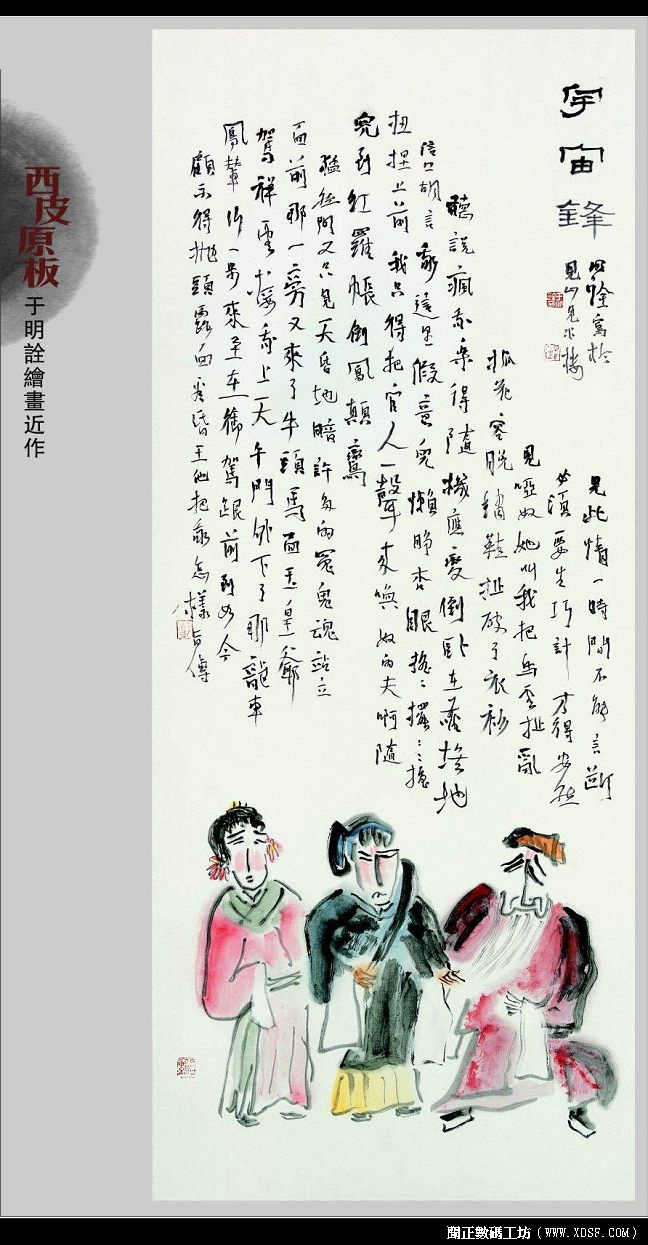 宇宙鋒
明詮寫於
見山見水樓
見此情一時間不能言斷
必須要生巧計方得安然
見啞奴她叫我把烏雲扯亂
抓花容脫綉鞋扯破了衣衫
聽說瘋我樂得隨機應變倒臥在塵埃地
信口胡言我這里假意兒懶睁杏眼摇摇擺擺摇
扭捏上前我只得把官人一聲來喚奴的夫啊隨
兒到紅羅帳倒鳳顛鸞
猛然間又只見天昏地暗許多的冤鬼魂站立
面前那一旁又來了牛頭馬面玉皇爺
駕祥雲接我上天午門外下了那龍車
鳳輦行一步來至在御駕跟前到如今
顧不得拋頭露面看昏王他把我怎樣旨傳
西皮原板
于明詮繪畫近作
閒正數碼工坊（WWW.XDSF.COM）